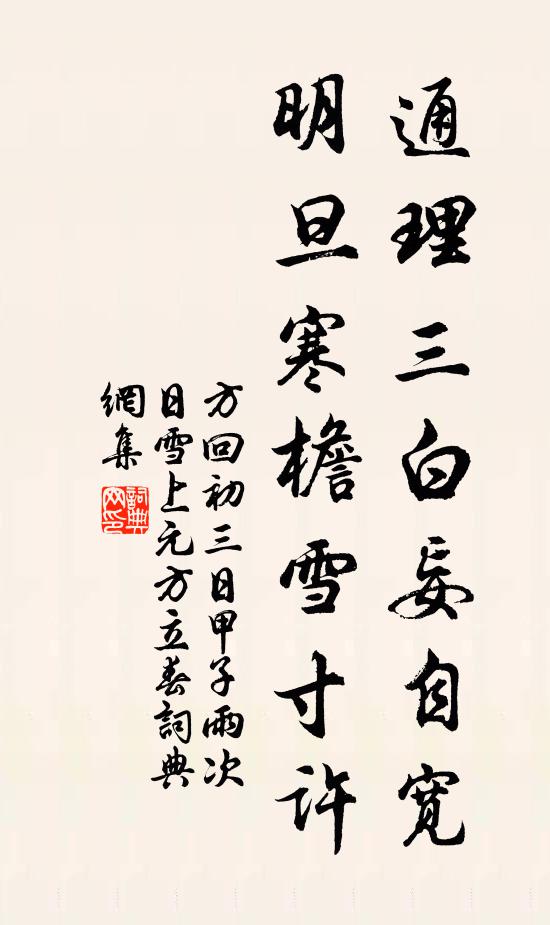 通理三白妄自寬
明旦寒檐雪寸許
方回初三日甲子雨次
日雪上元方立春詞典
網集
詞典網印